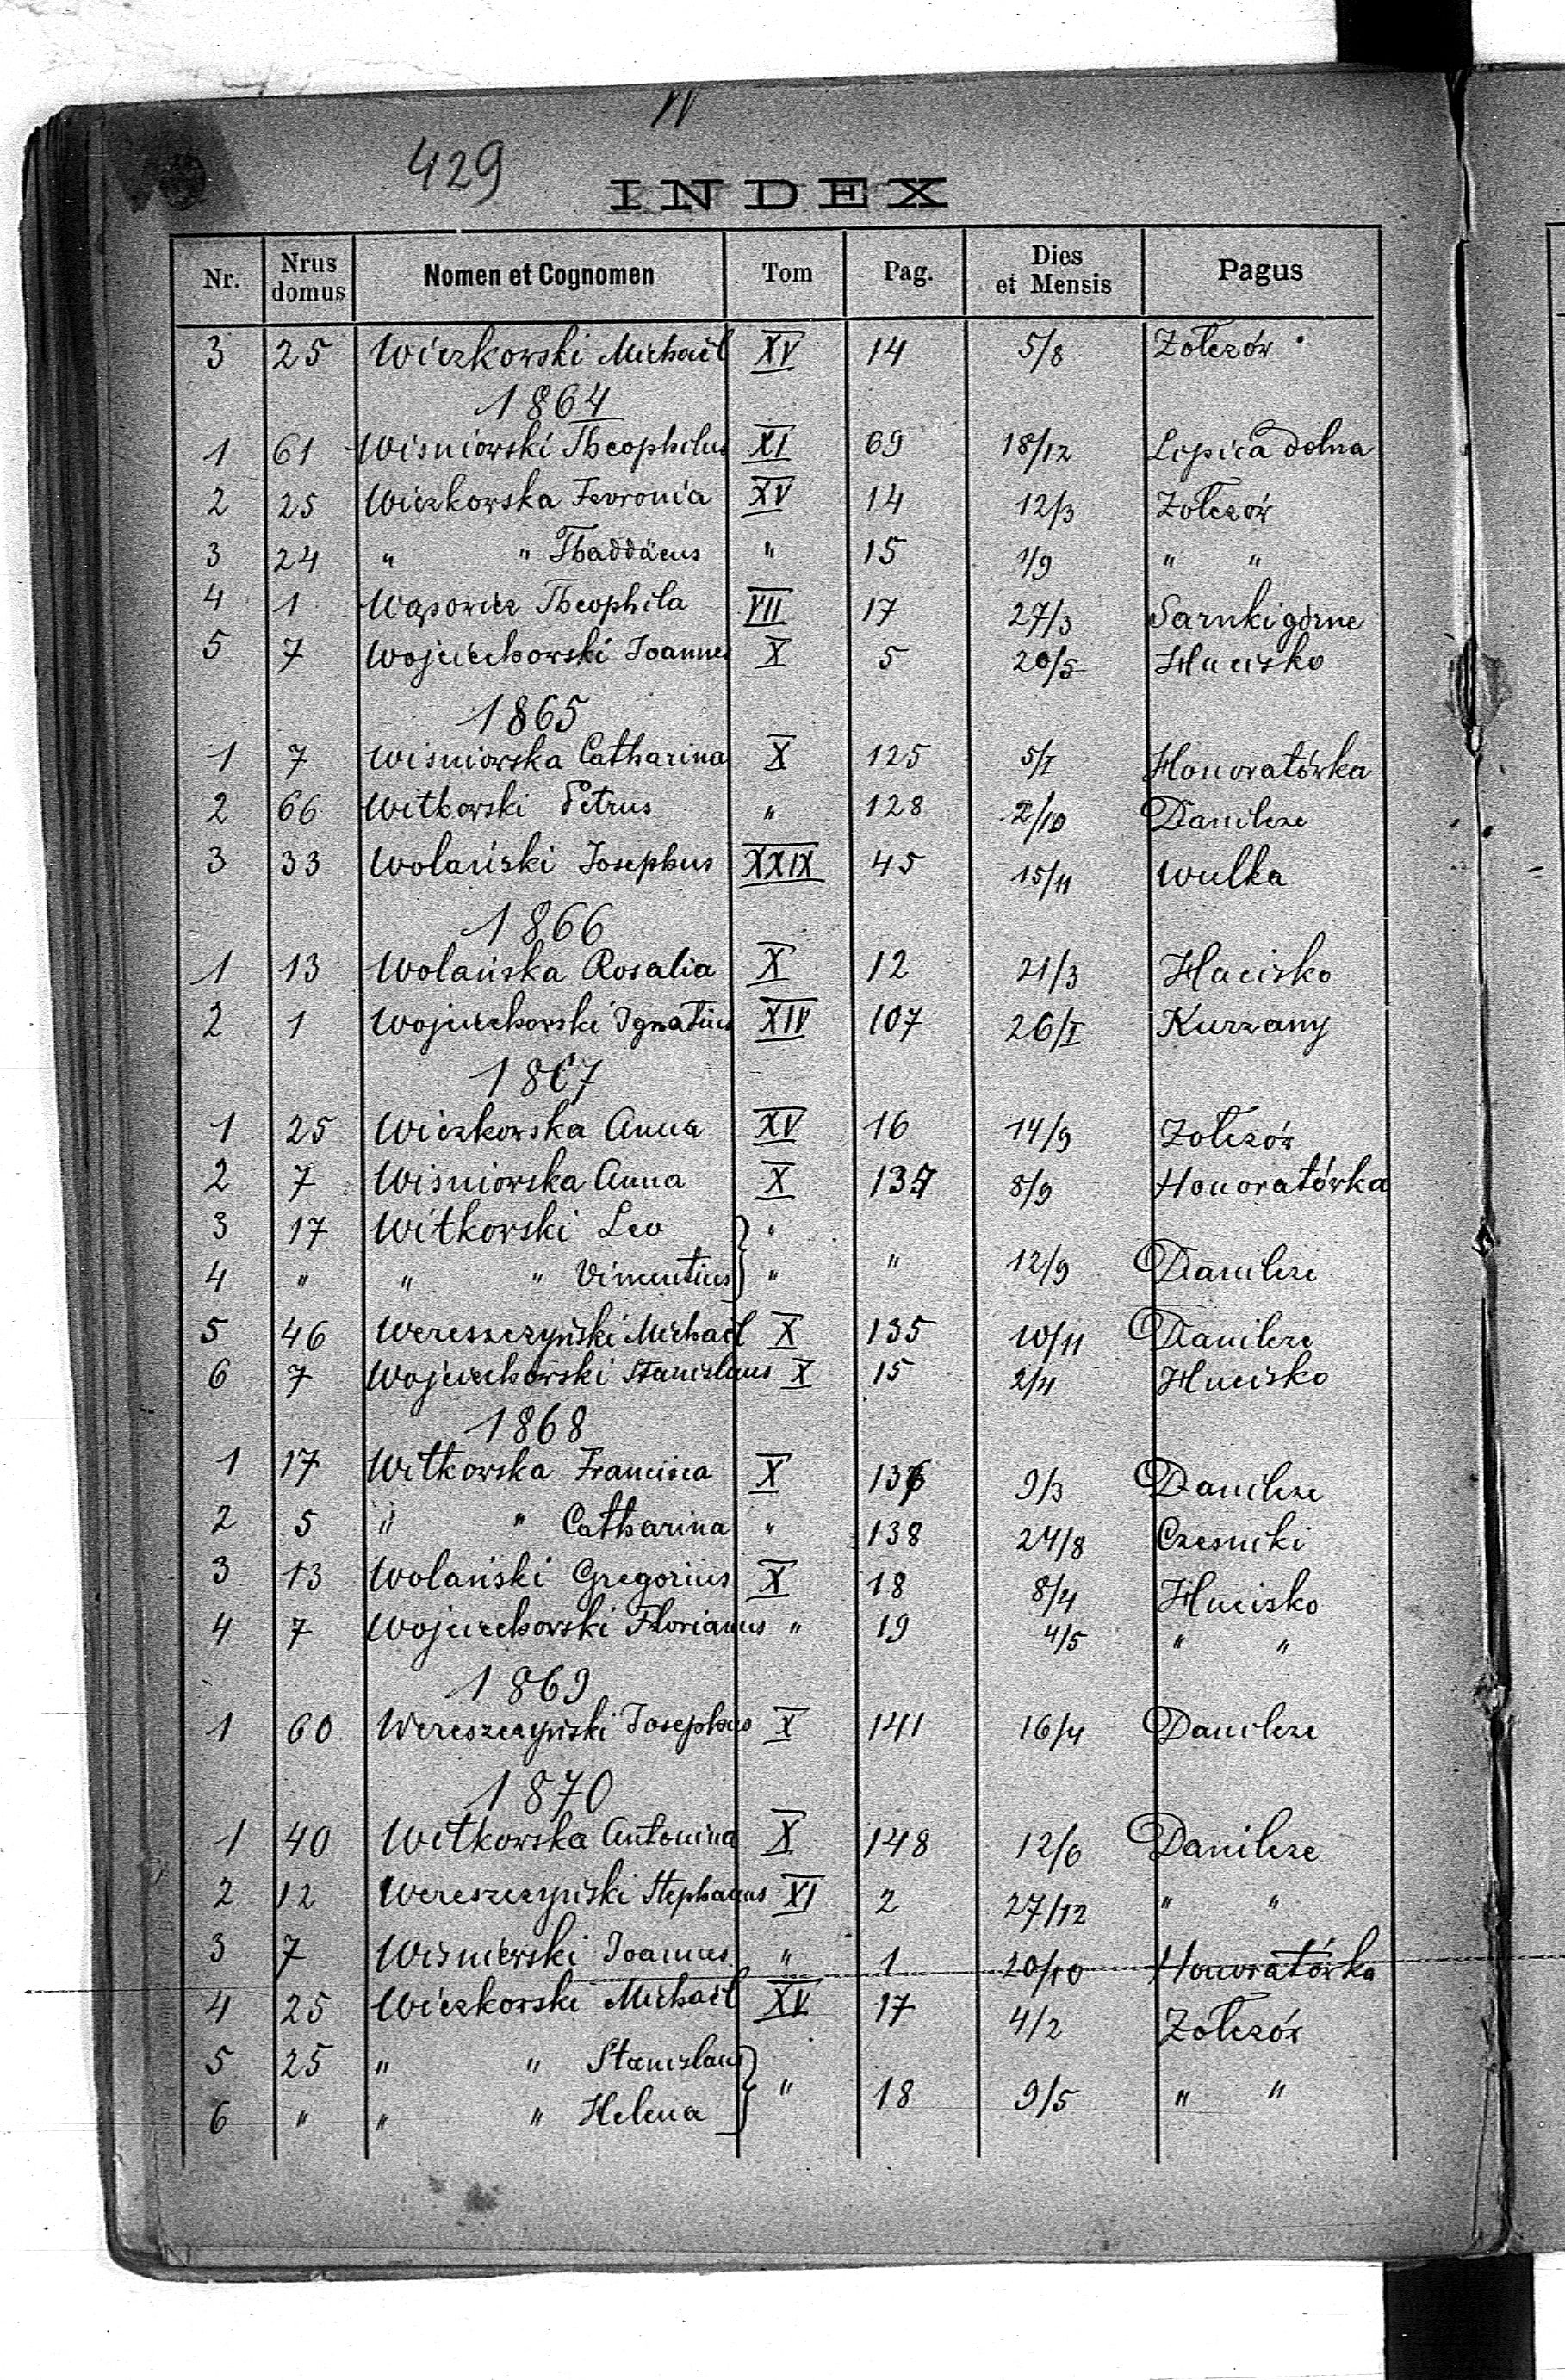 W
429
INDEX
Nr. Nrus domus Nomen et Cognomen Tom Pag. Dies et Mensis Pagus
3 25 Wiczkowski Michaël XV 14 5/8 Żołczów
1864
1 61 Wiśniowski Theophilus XI 69 18/12 Lipica dolna
2 25 Wiczkowska Fevronia XV 14 12/3 Żołczów
3 24 " " Thaddäeus " 15 1/9 " "
4 1 Wąsowicz Theophila VII 17 27/3 Sarnki górne
5 7 Wojciechowski Joannes X 5 20/5 Hucisko
1865
1 7 Wiśniowska Catharina X 125 5/I Honoratówka
2 66 Witkowski Petrus " 128 2/10 Danilcze
3 33 Wolański Josephus XXIX 45 15/11 Wulka
1866
1 13 Wolańska Rosalia X 12 21/3 Hucisko
2 1 Wojciechowski Ignatius XIV 107 26/I Kurzany
1867
1 25 Wiczkowska Anna XV 16 14/9 Żołczów
2 7 Wiśniowska Anna X 8/9 Honoratówka
3 17 Witkowski Leo "
4 " " " Vincentius " " 12/9 Danilcze
5 46 Wereszczyński Michaël X 135 10/11 Danilcze
6 7 Wojciechowski Stanislaus X 15 2/4 Hucisko
1868
1 17 Witkowska Francisca X 136 9/3 Danilcze
2 5 " " Catharina " 138 24/8 Czesniki
3 13 Wolański Gregorius X 18 8/4 Hucisko
4 7 Wojciechowski Florianus " 19 4/5 " "
1869
1 60 Wereszczyński Josephus X 141 16/4 Danilcze
1870
1 40 Witkowska Antonina X 148 12/6 Danilcze
2 12 Wereszczyński Stephanus XI 2 27/12 " "
3 7 Wiśniewski Joannes " 1 20/10 Honoratówka
4 25 Wiczkowski Michaël XV 17 4/2 Żołczów
5 25 " " Stanislaus
6 " " " Helena " 18 9/5 " "